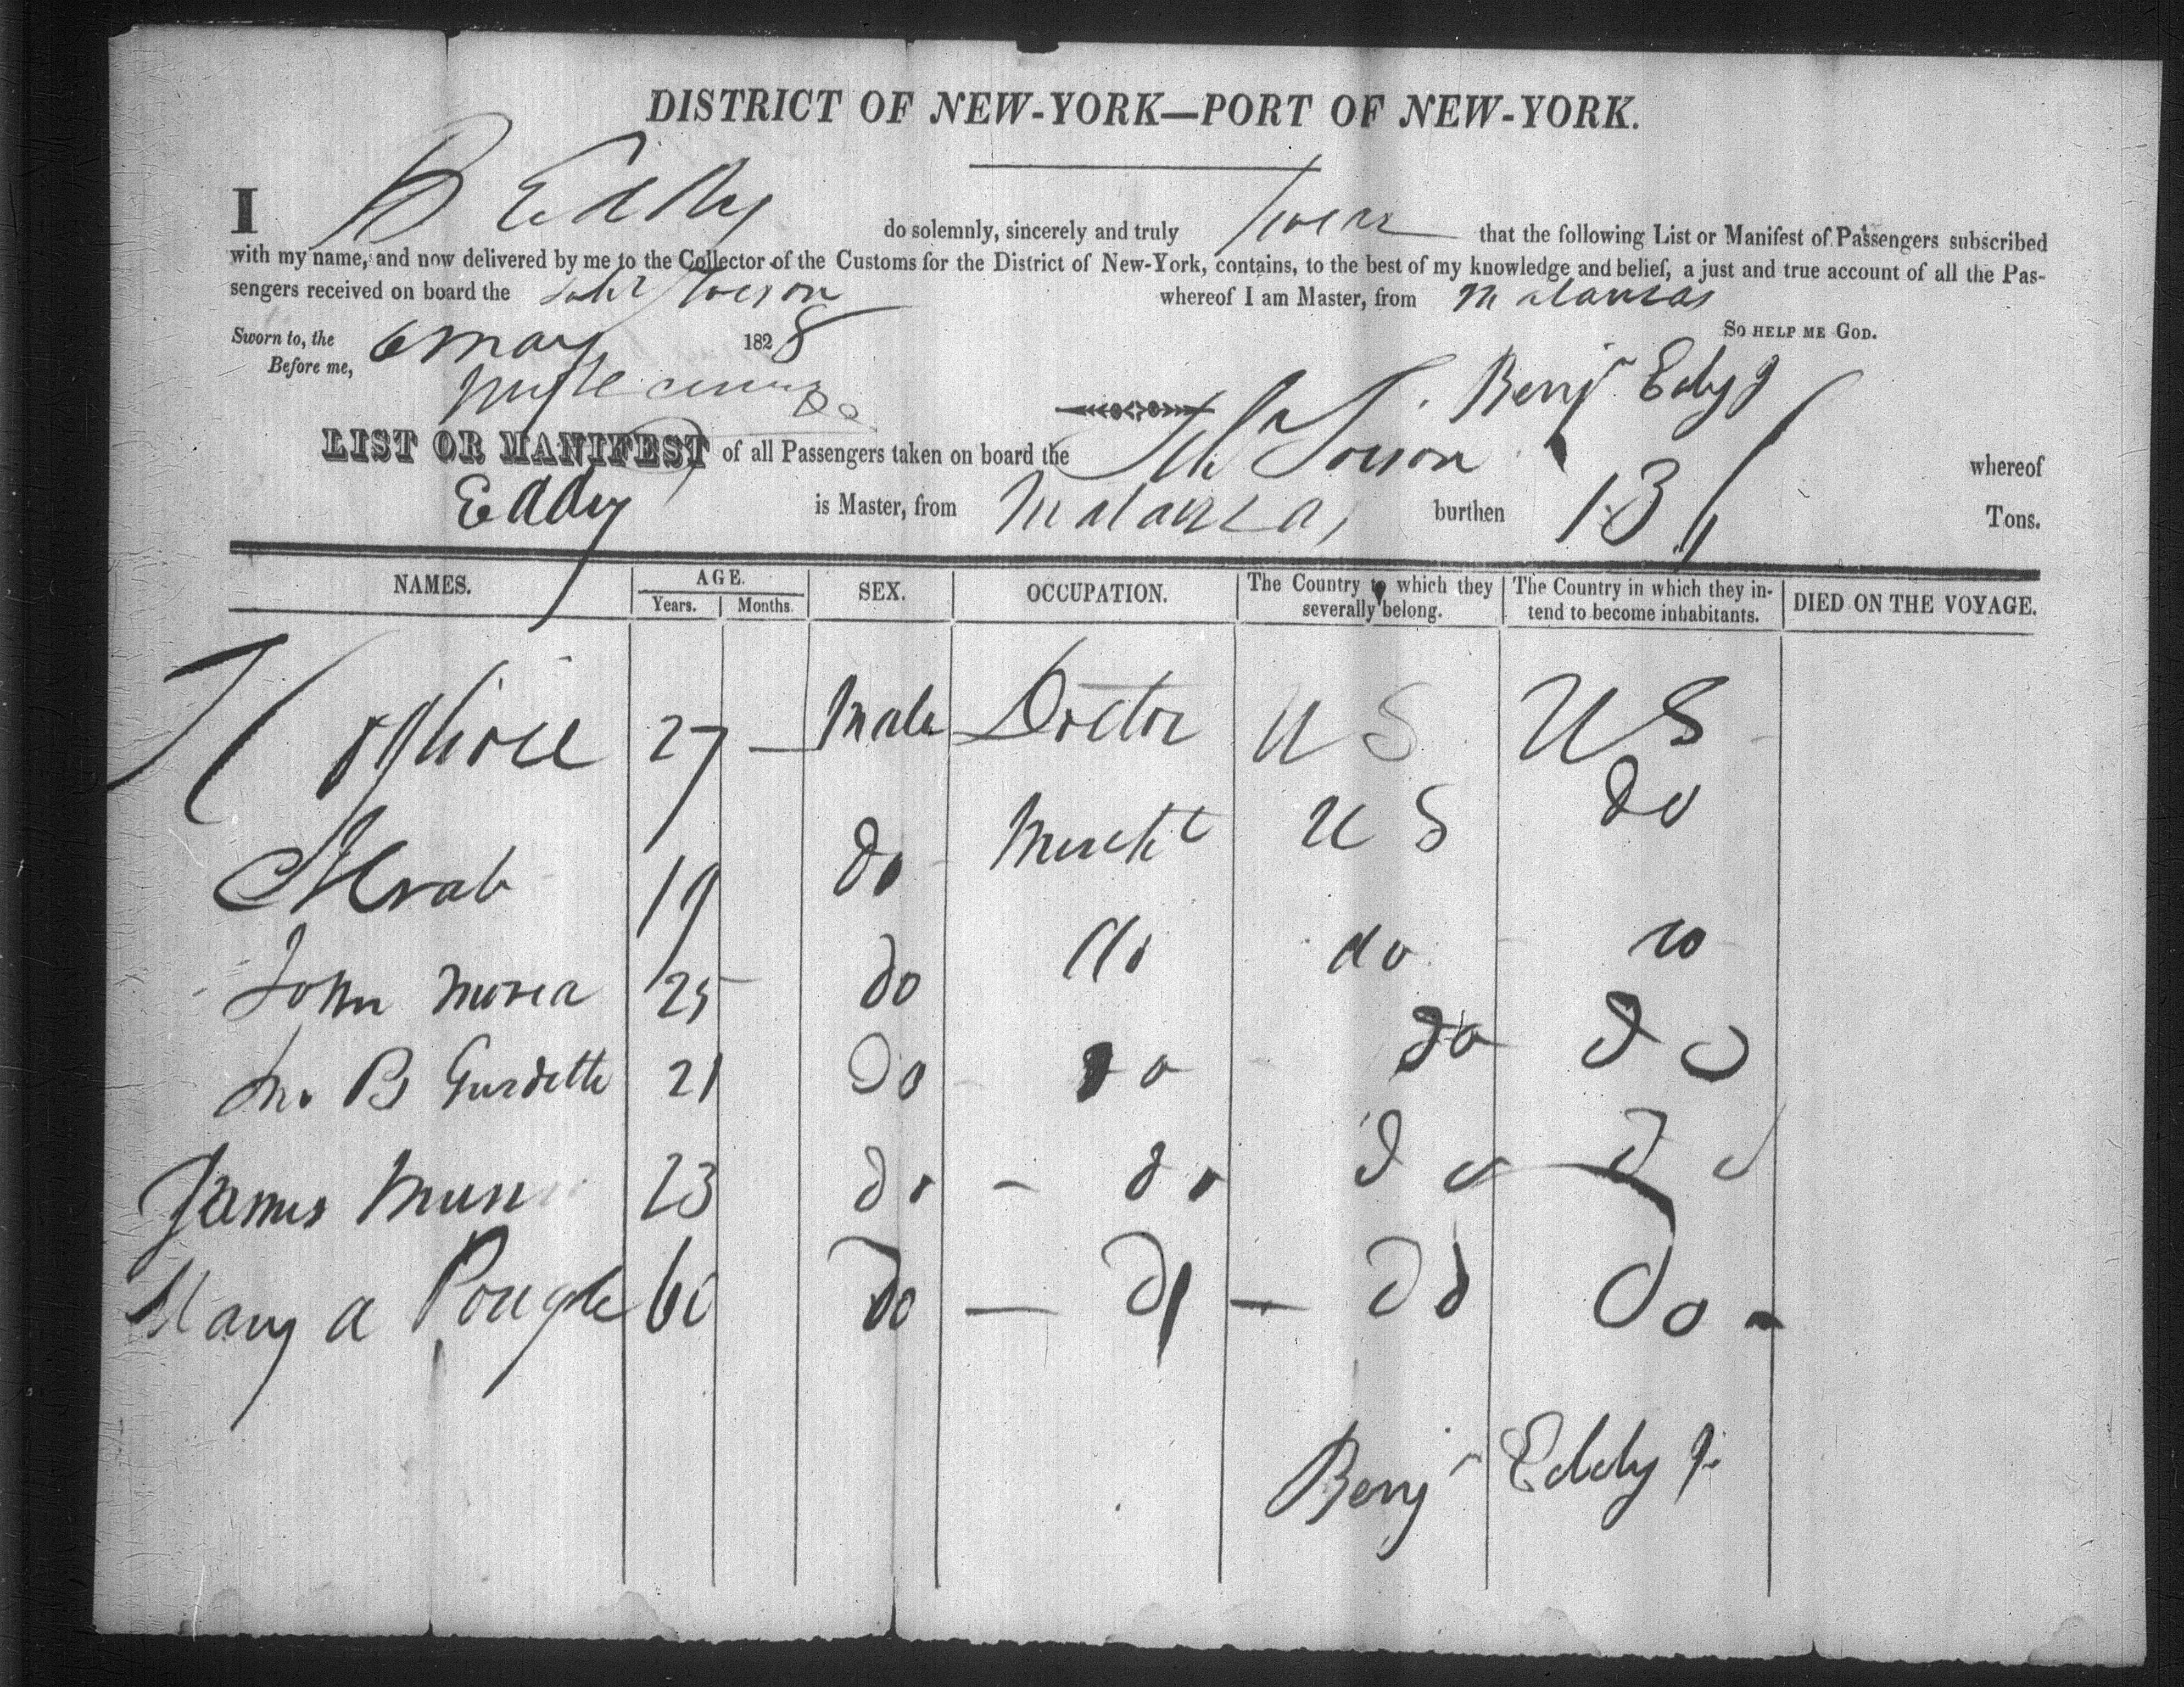 DISTRICT OF NEW-YORK—PORT OF NEW-YORK.
I B Eddy do solemnly, sincerely and truly swear that the following List or Manifest of Passengers subscribed
with my name, and now delivered by me to the Collector of the Customs for the District of New-York, contains, to the best of my knowledge and belief, a just and true account of all the Pas-
sengers received on board the whereof I am Master, from Matanzas
Sworn to, the 6 May 1828 SO HELP ME GOD.
Before me,
Benjn Eddy J
LIST OR MANIFEST of all Passengers taken on board the whereof
Eddy is Master, from Matanzas burthen Tons.
NAMES. AGE. SEX. OCCUPATION. The Country to which they severally belong. The Country in which they in-tend to become inhabitants. DIED ON THE VOYAGE.
Years. Months.
27 — Male Doctor U S U S
19 do Mercht U S do
John 25 do do do do
B Gurdette 21 do do do do
James 23 do - do do do
Mary a 60 do — do — do do -
Benjn Eddy Jr